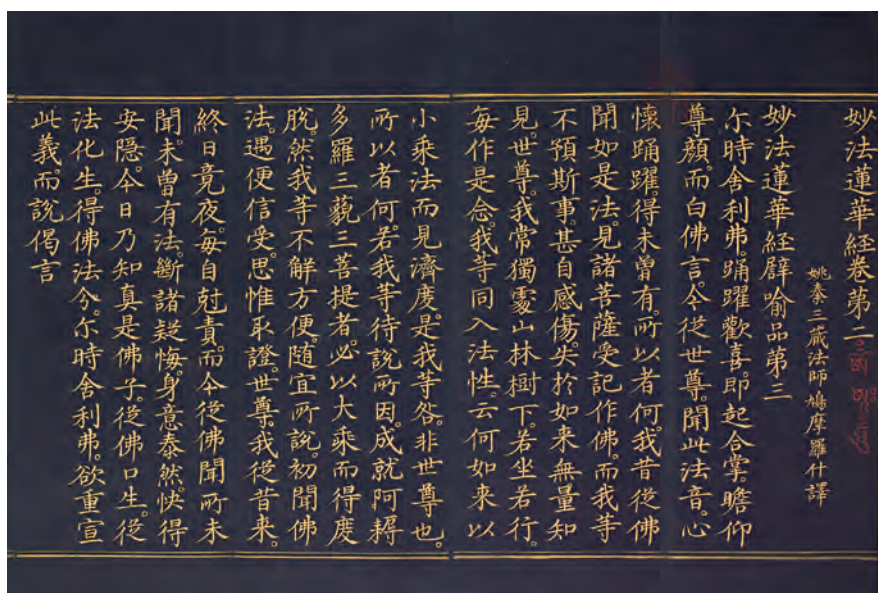 妙法蓮華經卷第二
姚秦三藏法師鳩摩羅什譯
妙法蓮華經辟喻品第三
尒時舍利弗。踊躍歡喜。即起合掌。瞻仰
尊顏。而白佛言。今從世尊。聞此法音。心
懷踊躍。得未曾有。所以者何。我昔從佛
聞如是法。見諸菩薩受記作佛。而我等
不預斯事。甚自感傷。失於如來無量知
見。世尊。我常獨處山林樹下。若坐若行。
每作是念。我等同入法性。云何如來以
小乘法而見濟度。是我等咎。非世尊也。
所以者何。若我等待說所因。成就阿耨
多羅三藐三菩提者。必以大乘而得度
脫。然我等不解方便。隨宜所說。初聞佛
法。遇便信受。思惟取證。世尊。我從昔來。
終日竟夜。每自尅責。而今從佛聞所未
聞。未曾有法。斷諸疑悔。身意泰然。快得
安隱。今日乃知真是佛子。從佛口生。從
法化生。得佛法分。尒時舍利弗。欲重宣
此義。而說偈言